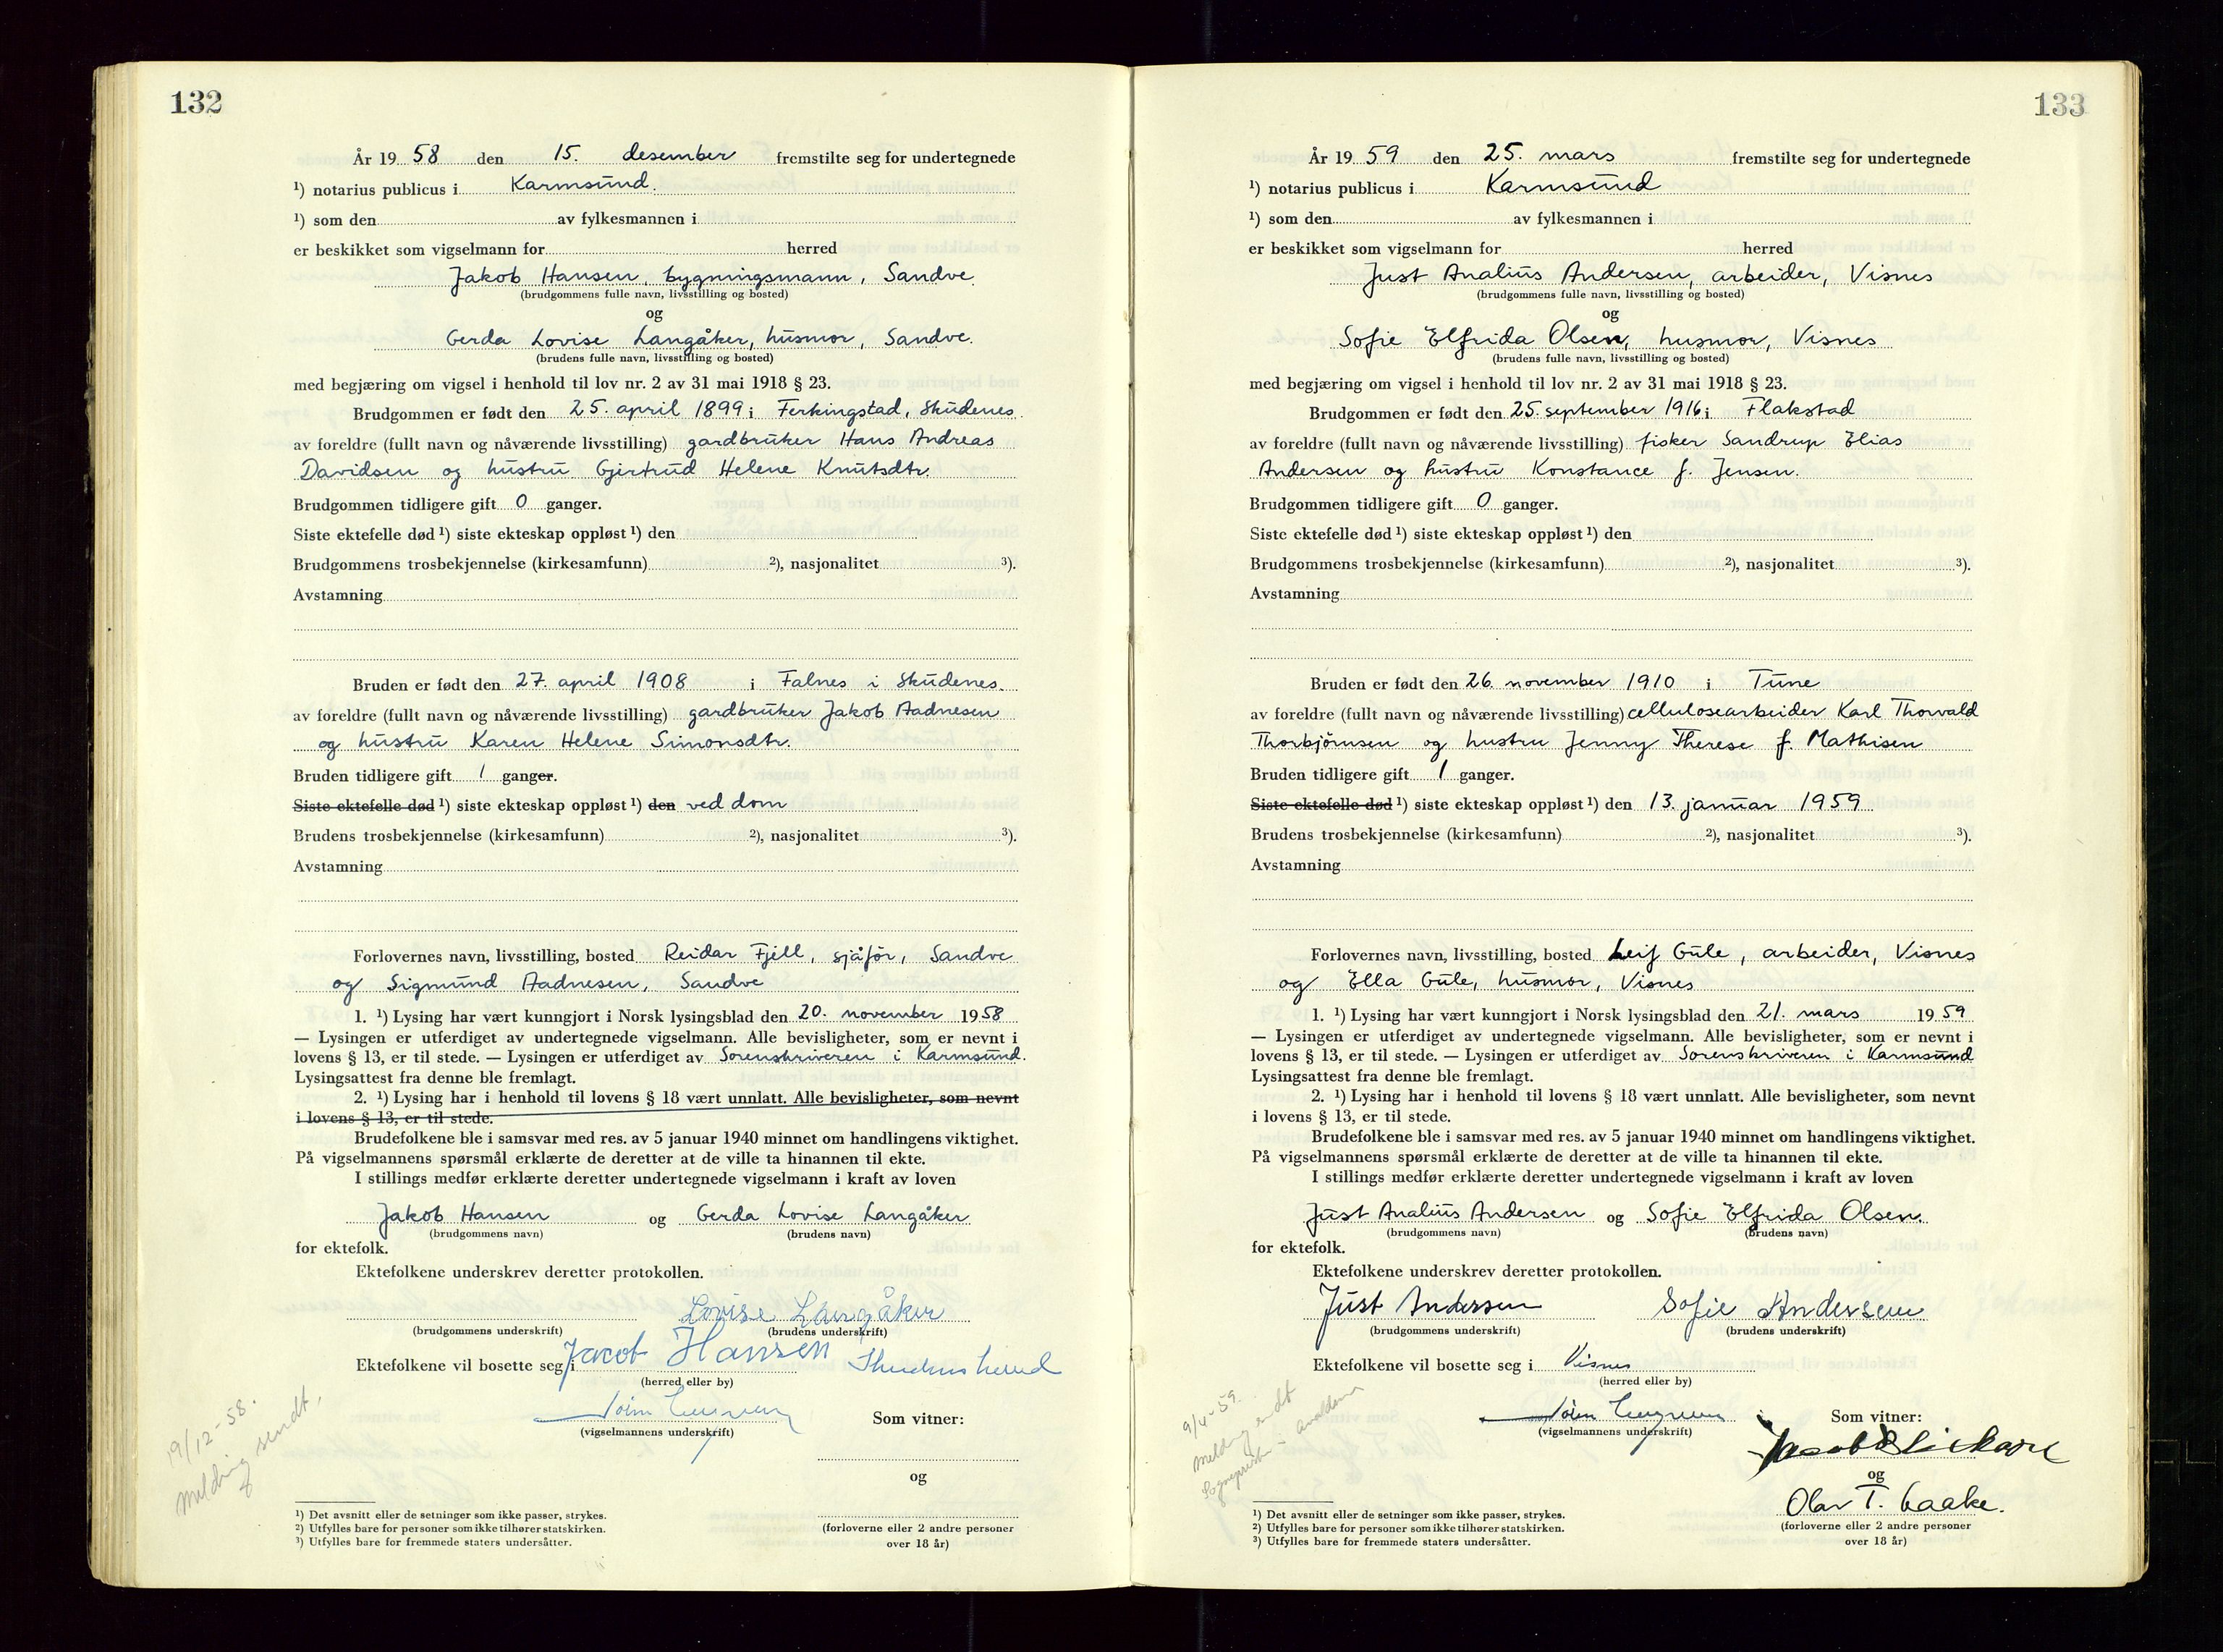 132
År 19 58 den 15. desember fremstilte seg for undertegnede
¹) notarius publicus i Karmsund.
¹) som den av fylkesmannen i
er beskikket som vigselmann for herred
Jakob Hansen, bygningsmann, Sandve.
(brudgommens fulle navn, livsstilling og bosted)
og
Gerda Lovise Langåker, husmor, Sandve.
(brudens fulle navn, livsstilling og bosted)
med begjæring om vigsel i henhold til lov nr. 2 av 31 mai 1918 § 23.
Brudgommen er født den 25. april 1899 i Ferkingstad, Skudenes.
av foreldre (fullt navn og nåværende livsstilling) gardbruker Hans Andreas
Davidsen og hustru Gjertrud Helene Knutsdtr.
Brudgommen tidligere gift 0 ganger.
Siste ektefelle død ¹) siste ekteskap oppløst ¹) den
Brudgommens trosbekjennelse (kirkesamfunn) ²), nasjonalitet ³).
Avstamning
Bruden er født den 27. april 1908 i Falnes i Skudenes.
av foreldre (fullt navn og nåværende livsstilling) gardbruker Jakob Aadnesen
og hustru Karen Helene Simonsdtr.
Bruden tidligere gift 1 ganger.
Siste ektefelle død ¹) siste ekteskap oppløst ¹) den ved dom
Brudens trosbekjennelse (kirkesamfunn) ²), nasjonalitet ³).
Avstamning
Forlovernes navn, livsstilling, bosted Reidar Fjell, sjåfør, Sandve
og Sigmund Aadnesen, Sandve
1. ¹) Lysing har vært kunngjort i Norsk lysingsblad den 20. november 1958
— Lysingen er utferdiget av undertegnede vigselmann. Alle bevisligheter, som er nevnt i
lovens § 13, er til stede. — Lysingen er utferdiget av Sorenskriveren i Karmsund.
Lysingsattest fra denne ble fremlagt.
2. ¹) Lysing har i henhold til lovens § 18 vært unnlatt. Alle bevisligheter, som nevnt
i lovens § 13, er til stede.
Brudefolkene ble i samsvar med res. av 5 januar 1940 minnet om handlingens viktighet.
På vigselmannens spørsmål erklærte de deretter at de ville ta hinannen til ekte.
I stillings medfør erklærte deretter undertegnede vigselmann i kraft av loven
Jakob Hansen og Gerda Lovise Langåker
(brudgommens navn) (brudens navn)
for ektefolk.
Ektefolkene underskrev deretter protokollen.
Lovise Langåker
(brudgommens underskrift) (brudens underskrift)
Ektefolkene vil bosette seg i Jacob Hansen
(herred eller by)
Som vitner:
(vigselmannens underskrift)
og
19/12-58.
Melding sendt.
¹) Det avsnitt eller de setninger som ikke passer, strykes.
²) Utfylles bare for personer som ikke tilhører statskirken.
³) Utfylles bare for fremmede staters undersåtter.
(forloverne eller 2 andre personer
over 18 år)
133
År 19 59 den 25. mars fremstilte seg for undertegnede
¹) notarius publicus i Karmsund
¹) som den av fylkesmannen i
er beskikket som vigselmann for herred
Just Analius Andersen, arbeider, Visnes
(brudgommens fulle navn, livsstilling og bosted)
og
Sofie Elfrida Olsen, husmor, Visnes
(brudens fulle navn, livsstilling og bosted)
med begjæring om vigsel i henhold til lov nr. 2 av 31 mai 1918 § 23.
Brudgommen er født den 25. september 1916 i Flakstad
av foreldre (fullt navn og nåværende livsstilling) fisker Sandrup Elias
Andersen og hustru Konstance f. Jensen.
Brudgommen tidligere gift 0 ganger.
Siste ektefelle død ¹) siste ekteskap oppløst ¹) den
Brudgommens trosbekjennelse (kirkesamfunn) ²), nasjonalitet ³).
Avstamning
Bruden er født den 26. november 1910 i Tune
av foreldre (fullt navn og nåværende livsstilling) cellulosearbeider Karl Thorvald
Thorbjørnsen og hustru Jenny Therese f. Mathisen
Bruden tidligere gift 1 ganger.
Siste ektefelle død ¹) siste ekteskap oppløst ¹) den 13. januar 1959
Brudens trosbekjennelse (kirkesamfunn) ²), nasjonalitet ³).
Avstamning
Forlovernes navn, livsstilling, bosted Leif Gule, arbeider, Visnes
og Ella Gule, husmor, Visnes
1. ¹) Lysing har vært kunngjort i Norsk lysingsblad den 21. mars 1959
— Lysingen er utferdiget av undertegnede vigselmann. Alle bevisligheter, som er nevnt i
lovens § 13, er til stede. — Lysingen er utferdiget av Sorenskriveren i Karmsund
Lysingsattest fra denne ble fremlagt.
2. ¹) Lysing har i henhold til lovens § 18 vært unnlatt. Alle bevisligheter, som nevnt
i lovens § 13, er til stede.
Brudefolkene ble i samsvar med res. av 5 januar 1940 minnet om handlingens viktighet.
På vigselmannens spørsmål erklærte de deretter at de ville ta hinannen til ekte.
I stillings medfør erklærte deretter undertegnede vigselmann i kraft av loven
Just Analius Andersen og Sofie Elfrida Olsen.
(brudgommens navn) (brudens navn)
for ektefolk.
Ektefolkene underskrev deretter protokollen.
Just Andersen Sofie Andersen
(brudgommens underskrift) (brudens underskrift)
Ektefolkene vil bosette seg i Visnes
(herred eller by)
Som vitner:
(vigselmannens underskrift)
og
Olav T. Gaake.
9/4-59.
Melding sendt
¹) Det avsnitt eller de setninger som ikke passer, strykes.
²) Utfylles bare for personer som ikke tilhører statskirken.
³) Utfylles bare for fremmede staters undersåtter.
(forloverne eller 2 andre personer
over 18 år)